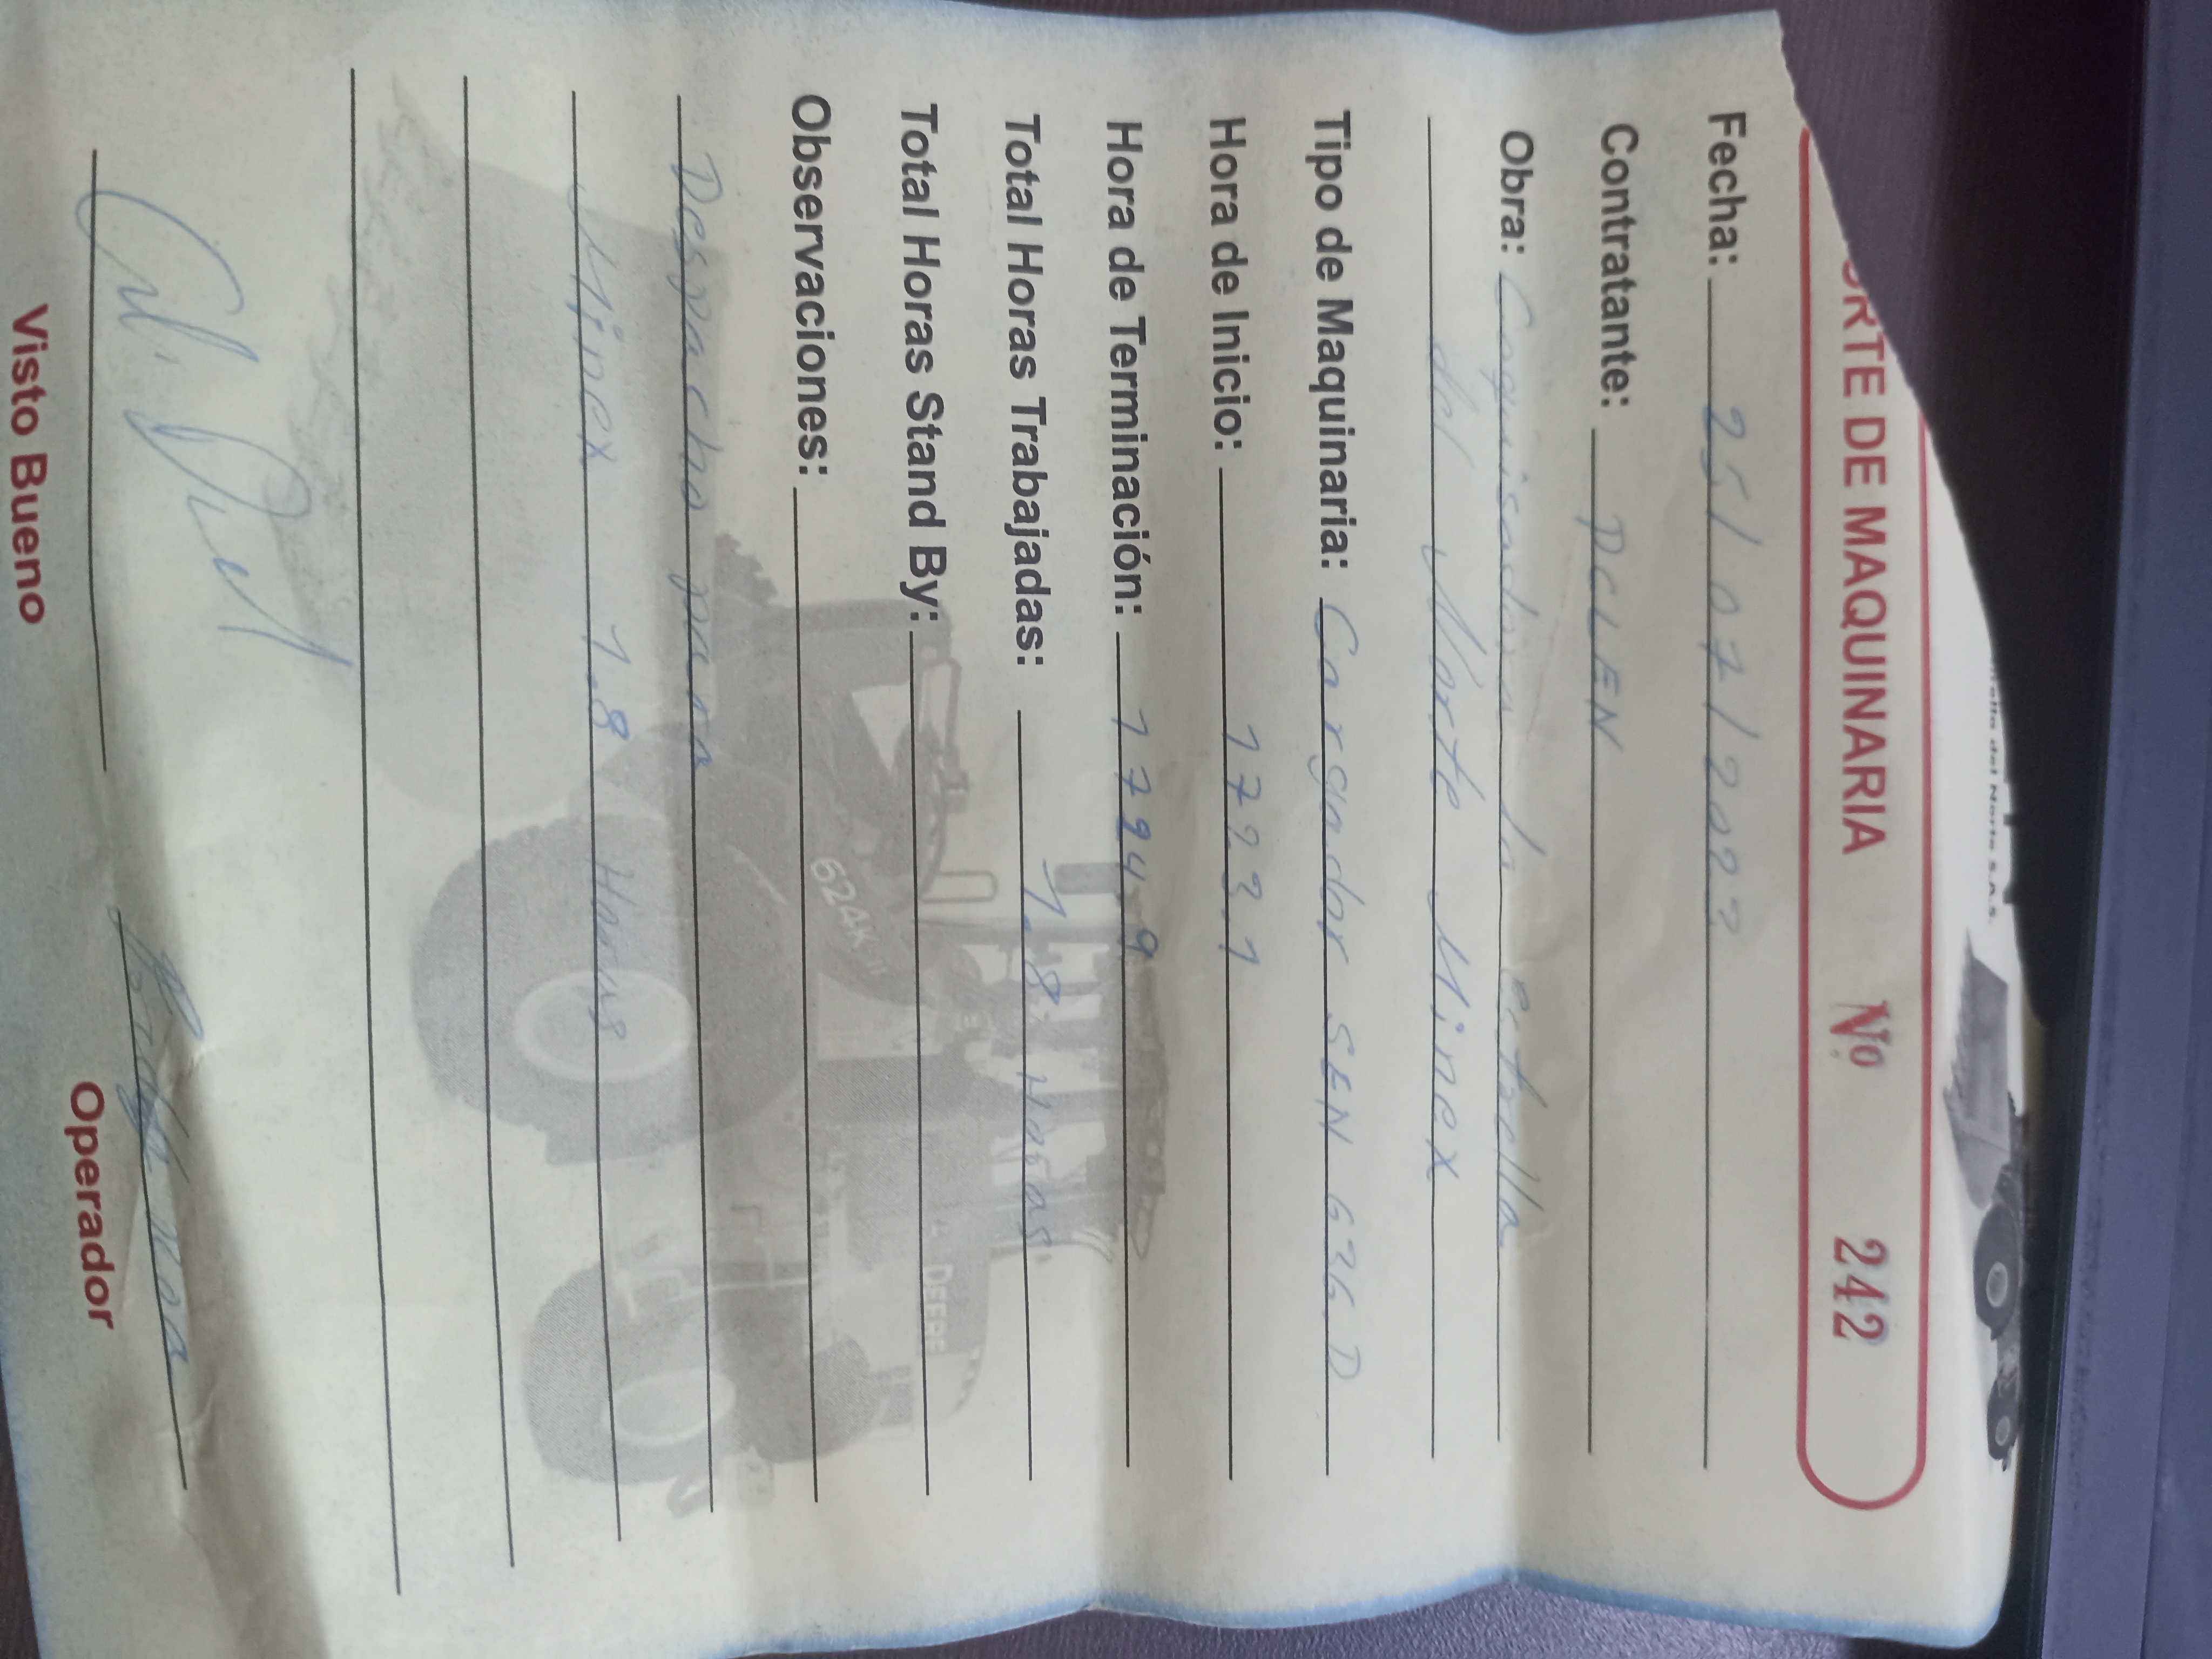 falto del Norte S.A.S.
ORTE DE MAQUINARIA No 242
Fecha: 25/07/2023
Contratante: DCLEN
Obra: Coquisadora la estrella
del Norte Minex
Tipo de Maquinaria: Cargador SEM 636 D
Hora de Inicio: 1723.1
Hora de Terminación: 1724.9
Total Horas Trabajadas: 1.8 Horas
Total Horas Stand By:
Observaciones:
Despacho para
Minex 1.8 Horas
624K II
DEERE
Visto Bueno Operador